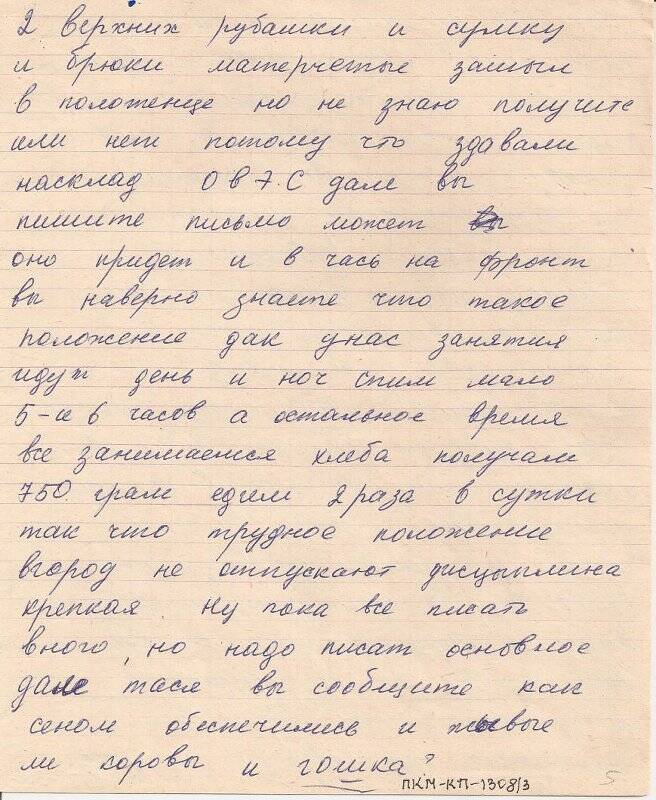 2 верхних рубашки и сумку
и брюки матерчетые зашыл
в положенце но не знаю получите
или нет потому что здавали
насклад О В 7. С дале вы
пишите письмо может вы
оно придет и в чась на фронт
вы наверно знаете что такое
положение дак унас занятия
идут день и ноч спим мало
5-и 6 часов а остальное время
все занимаемся хлеба получам
750 грам едим 2 раза в сутки
так что трудное положение
вгород не отпускают дисцыплина
крепкая Ну пока все писать
вного, но надо писат основное
дале тася вы сообщите как
сеном обеспечились и жывые
ли коровы и гошка?
ПКМ-КП-1308/3
5